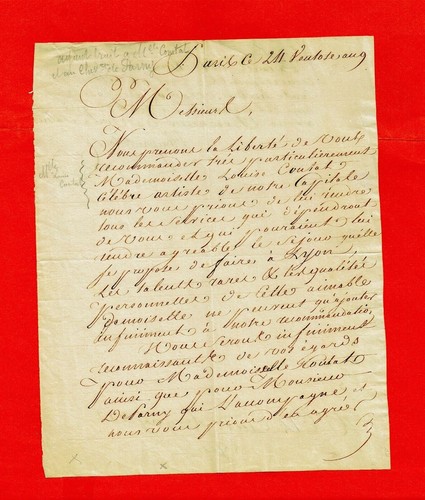 Paris le 24 Ventose an 9
Messieurs,
Nous prenons la liberté de vous
recommander très particulièrement
Mademoiselle Louise Contat
célèbre artiste de notre capitale
nous vous prions de lui rendre
tous les services qui dépendront
de vous et qui pouraient lui
rendre agréable le séjour quelle
se propose de faire à Lyon,
les talents rares & les qualités
personnelles de cette aimable
Demoiselle ne peuvent qu'ajouter
infiniment à notre recommandation,
Nous serons infiniment
reconnaissants de vos égards
pour Mademoiselle Contat
ainsi que pour Monsieur
DeParny qui l'accompagne, et
nous vous prions d'en agréer